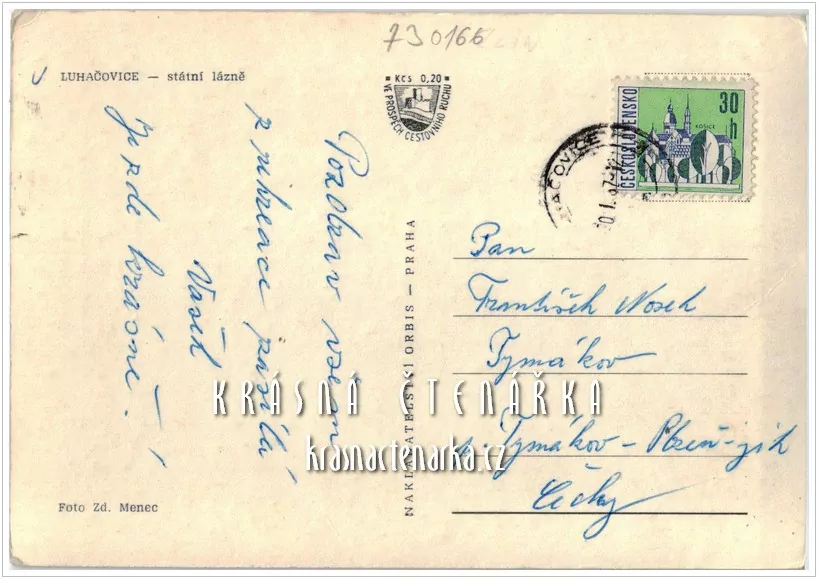 730166
LUHAČOVICE — státní lázně
Kčs 0,20
VE PROSPĚCH CESTOVNÍHO RUCHU
ČESKOSLOVENSKO
30 h
KOŠICE
Pozdrav všem
z rekreace posílá
Vašek
Je zde krásně!
NAKLADATELSTVÍ ORBIS — PRAHA
Pan
František Nosek
Tymákov
p. Tymákov - Plzeň-jih
Čechy
KRÁSNÁ ČTENÁŘKA
krasnactenarka.cz
Foto Zd. Menec